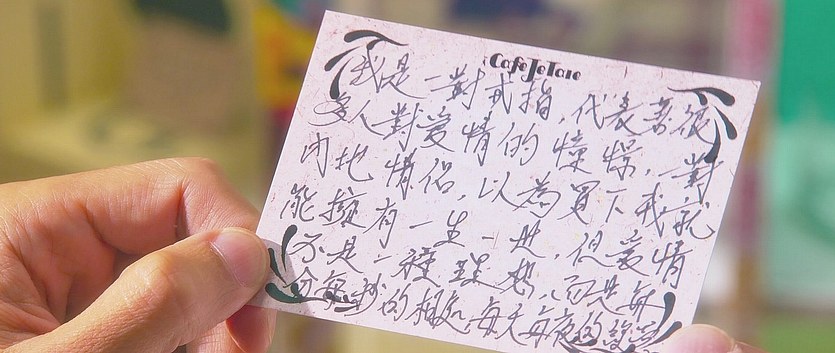 CafeTeTaro
我是一對戒指，代表著很
多人對愛情的憧憬，一對
內地情侶，以為買下我就
能擁有一生一世，但愛情
不是一種理想，而是每
分每秒的相處，每天每夜的